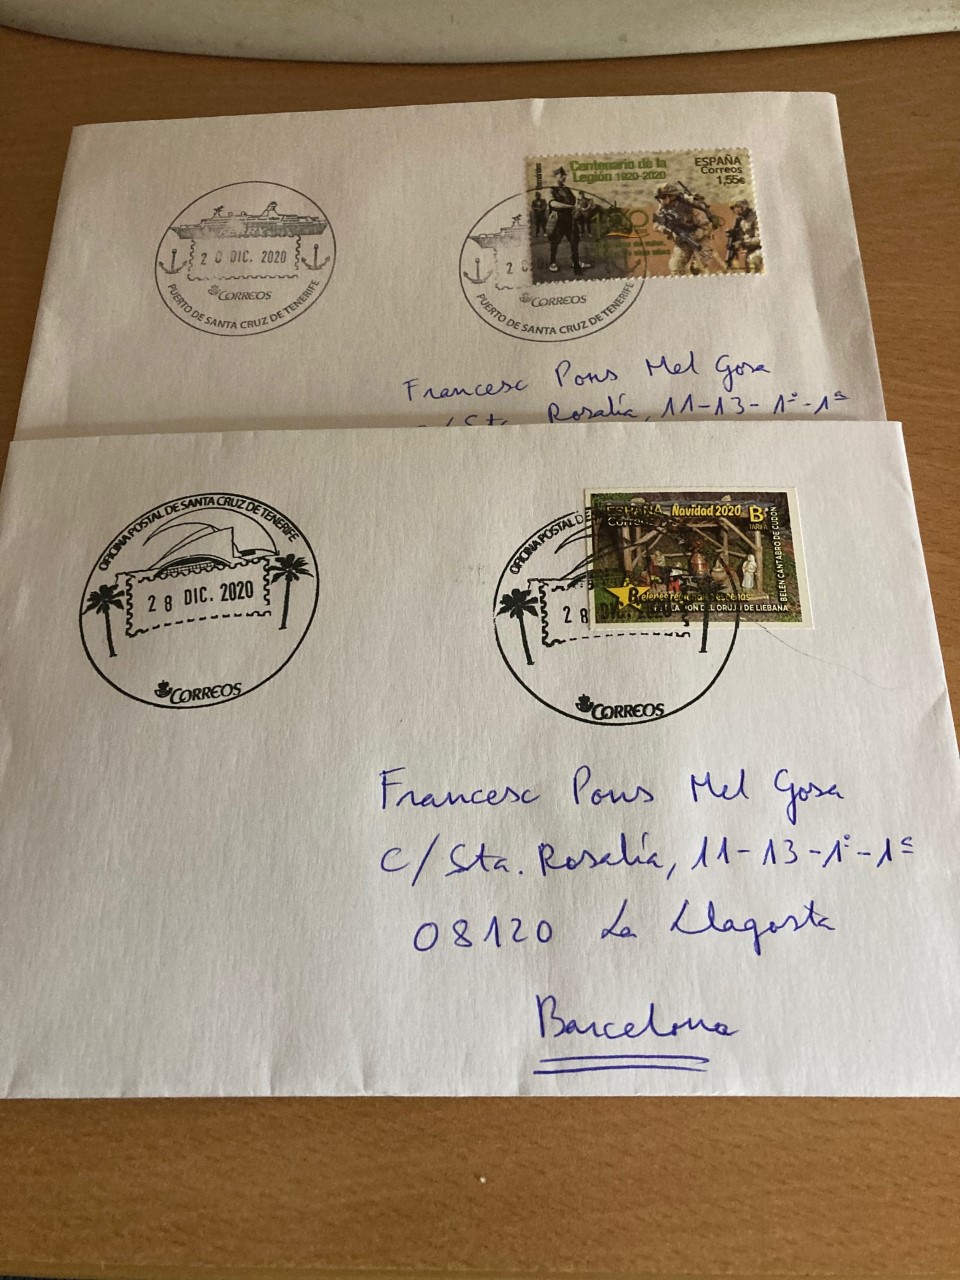 Centenario de la
Legión 1920-2020
ESPAÑA
Correos
1,55€
2 0 DIC. 2020
CORREOS
PUERTO DE SANTA CRUZ DE TENERIFE
2
CORREOS
PUERTO DE SANTA CRUZ DE TENERIFE
Francesc Pons Mel Gosa
c/ Sta. Rosalía, 11-13-1º-1ª
OFICINA POSTAL DE SANTA CRUZ DE TENERIFE
2 8 DIC. 2020
CORREOS
OFICINA POSTAL DE
2 8 DIC. 2020
CORREOS
ESPAÑA
Correos
Navidad 2020
B
TARIFA
BELÉN CÁNTABRO DE CUDÓN
Belenes
DEL ORUJO DE LIÉBANA
Francesc Pons Mel Gosa
C/ Sta. Rosalía, 11-13-1º-1ª
08120 La Llagosta
Barcelona